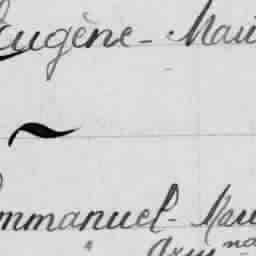 Eugène - Mau
~
Emmanuel - Mau